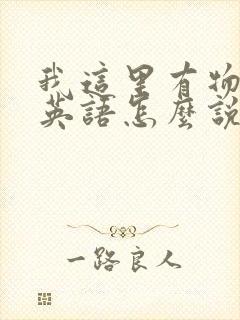 我這里有物
英語怎麼說
一路良人